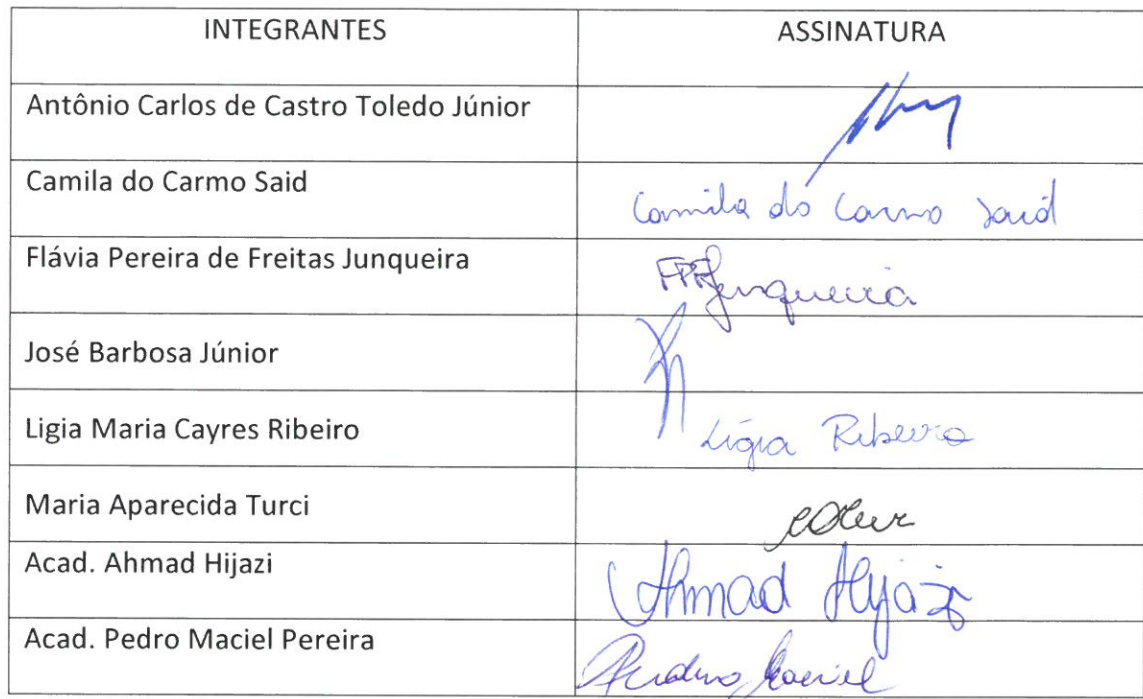 INTEGRANTES ASSINATURA
Antônio Carlos de Castro Toledo Júnior
Camila do Carmo Said Camila do Carmo Said
Flávia Pereira de Freitas Junqueira FPFJunqueira
José Barbosa Júnior
Ligia Maria Cayres Ribeiro Lígia Ribeiro
Maria Aparecida Turci
Acad. Ahmad Hijazi Ahmad Hijazi
Acad. Pedro Maciel Pereira Maciel